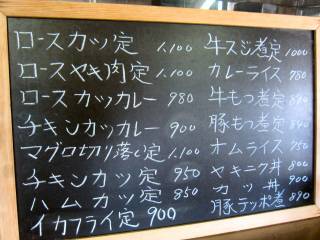 ロースカツ定 1.100
ロースヤキ肉定 1.100
ロースカツカレー 980
チキンカツカレー 900
マグロ切り落し定 1.100
チキンカツ 950
ハムカツ 850
イカフライ定 900
牛スジ煮定 1000
カレーライス 780
牛もつ煮定 890
豚もつ煮定 840
オムライス 750
ヤキニク丼 800
カツ丼 900
豚テッポ煮 890